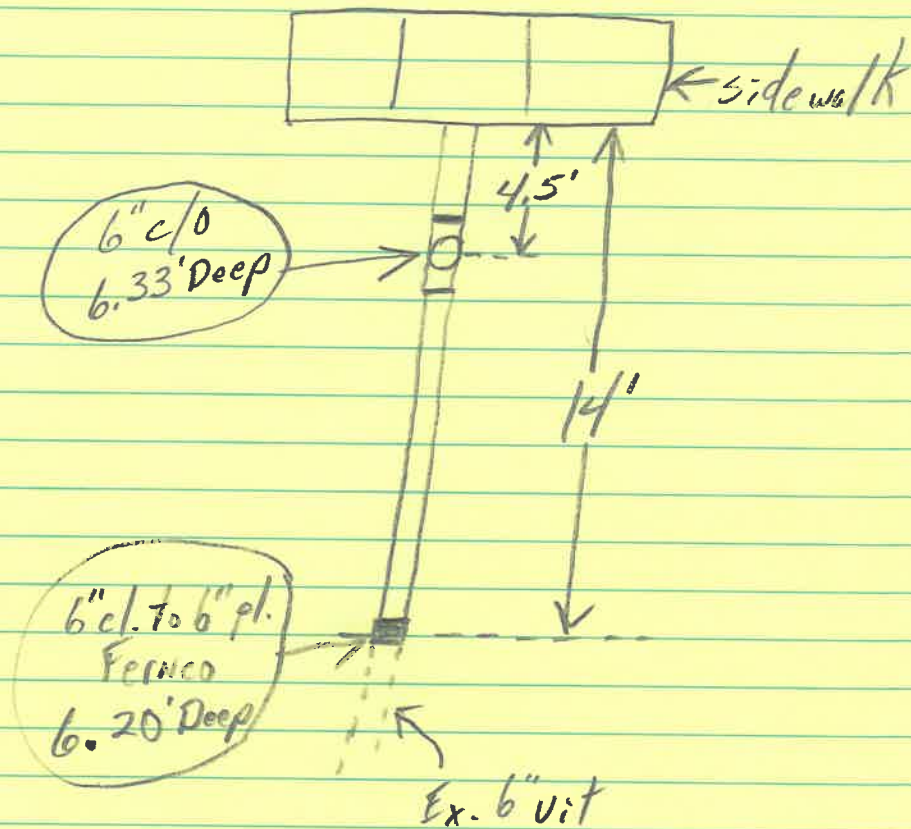 sidewalk
4.5'
6" c/o
6.33' Deep
14'
6" cl. To 6" pl.
Fernco
6.20' Deep
Ex. 6" Vit